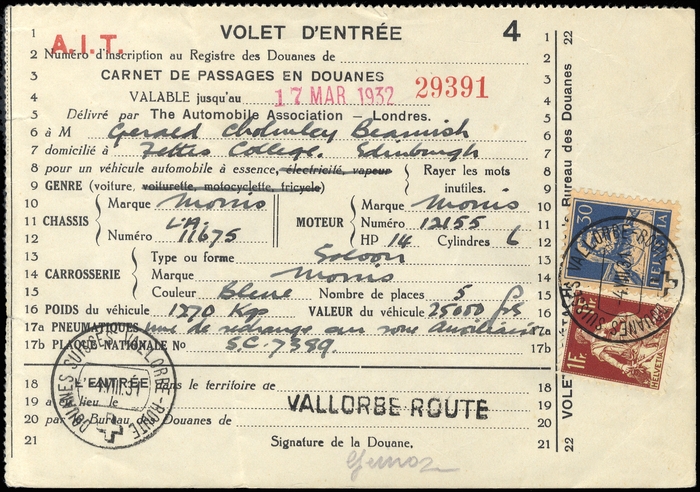 1 VOLET D'ENTRÉE 4 1
A.I.T.
2 Numéro d'inscription au Registre des Douanes de 2
3 CARNET DE PASSAGES EN DOUANES 3
4 VALABLE jusqu'au 17 MAR 1932 29391 4
5 Délivré par The Automobile Association – Londres. 5
6 à M Gerald Cholmley Beamish 6
7 domicilié à Fettes College. Edinburgh 7
8 pour un véhicule automobile à essence, électricité, vapeur } Rayer les mots 8
9 GENRE (voiture, voiturette, motocyclette, tricycle) inutiles. 9
10 Marque Morris Marque Morris 10
11 CHASSIS L'A: MOTEUR Numéro 12155 11
12 Numéro 11675 HP 14 Cylindres 6 12
13 Type ou forme Saloon 13
14 CARROSSERIE Marque Morris 14
15 Couleur Bleue Nombre de places 5 15
16 POIDS du véhicule 1270 Kgs VALEUR du véhicule 25000 frs 16
17a PNEUMATIQUES une de rechange sur roue 17a
17b PLAQUE NATIONALE No SC-7389 17b
18 L'ENTRÉE dans le territoire de 18
19 a eu lieu le VALLORBE ROUTE 19
20 par le Bureau des Douanes de 20
21 Signature de la Douane, 21
DOUANES SUISSES VALLORBE-ROUTE
4.VII.31
22
Bureau des Douanes
VOLET
22
30
HELVETIA
1FR.
HELVETIA
DOUANES SUISSES VALLORBE-ROUTE